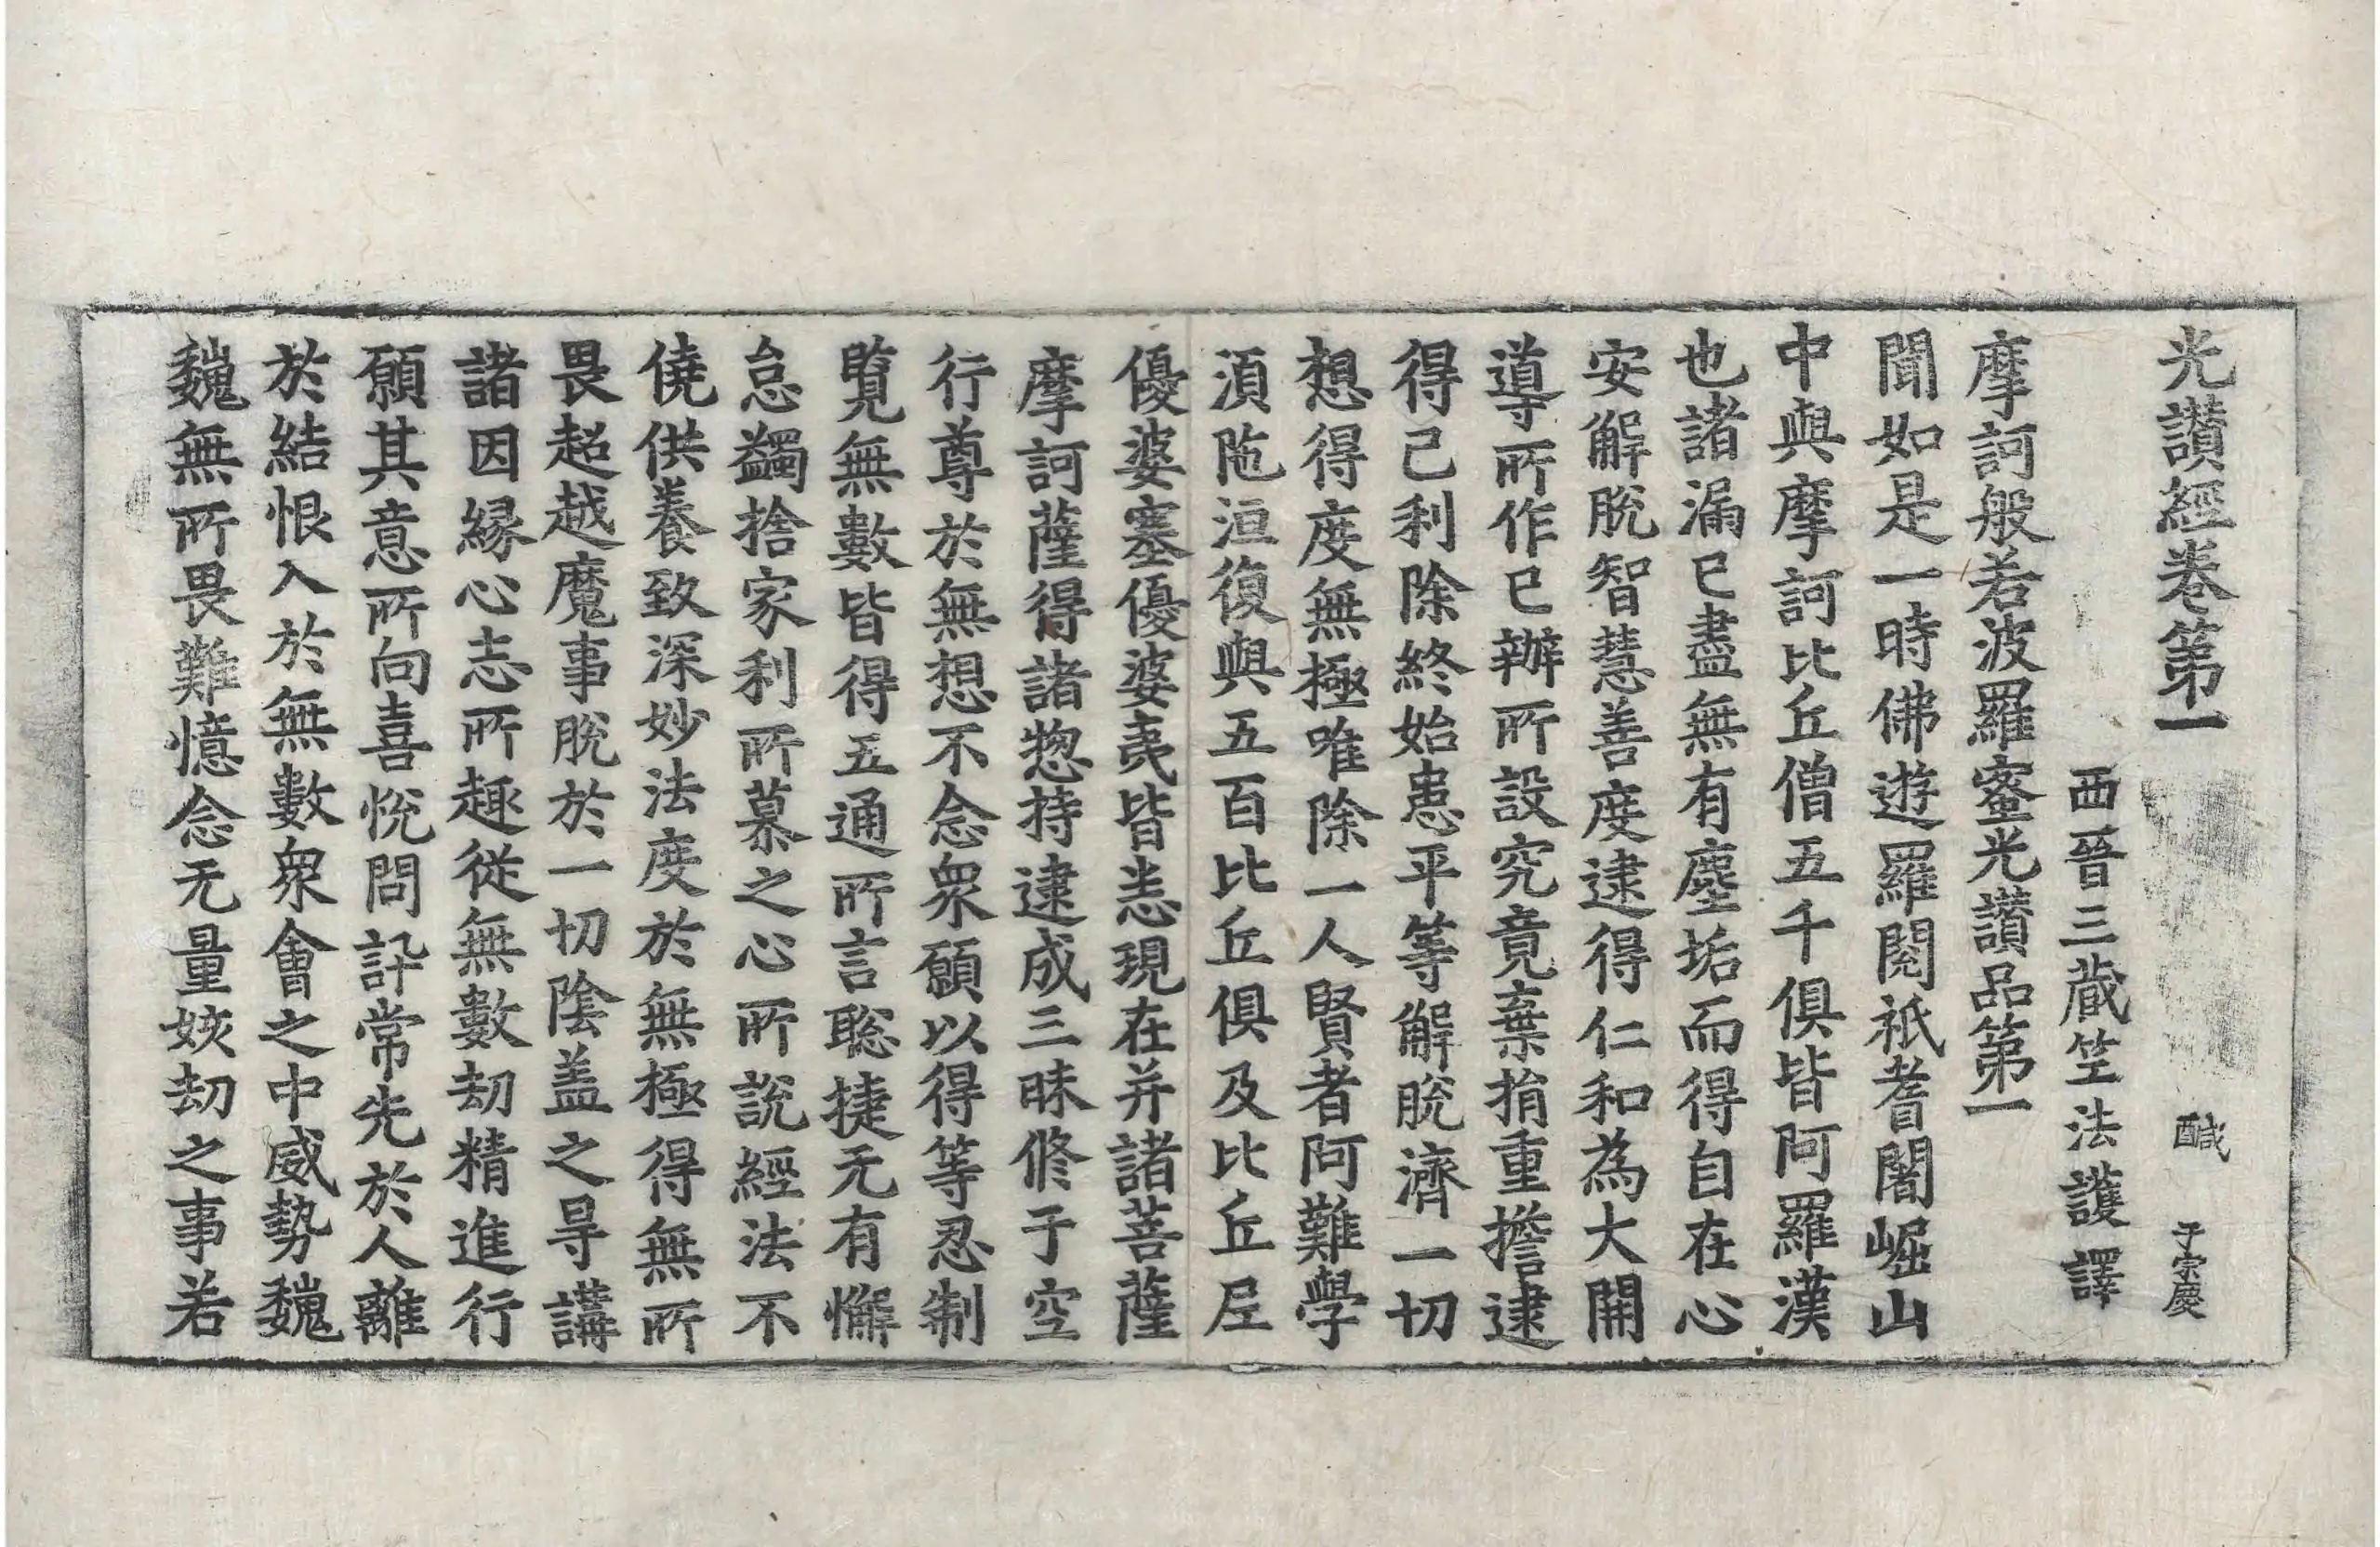 光讃經卷第一 醎 于宗慶
西晉三蔵笁法護譯
摩訶般若波羅蜜光讃品第一
聞如是一時佛遊羅閱祇耆闍崛山
中與摩訶比丘僧五千俱皆阿羅漢
也諸漏已盡無有塵垢而得自在心
安解脫智慧善度逮得仁和為大開
導所作已辦所設究竟棄捐重擔逮
得己利除終始患平等解脫濟一切
想得度無極唯除一人賢者阿難學
湏陁洹復與五百比丘俱及比丘尼
優婆塞優婆夷皆悉現在并諸菩薩
摩訶薩得諸惣持逮成三昧修于空
行尊於無想不念衆願以得等忍制
覽無數皆得五通所言聡捷无有懈
怠蠲捨家利所慕之心所說經法不
僥供養致深妙法度於無極得無所
畏超越魔事脫於一切陰盖之㝵講
諸因緣心志所趣從無數劫精進行
願其意所向喜悅問訊常先於人離
於結恨入於無數衆會之中威勢巍
巍無所畏難憶念无量姟劫之事若